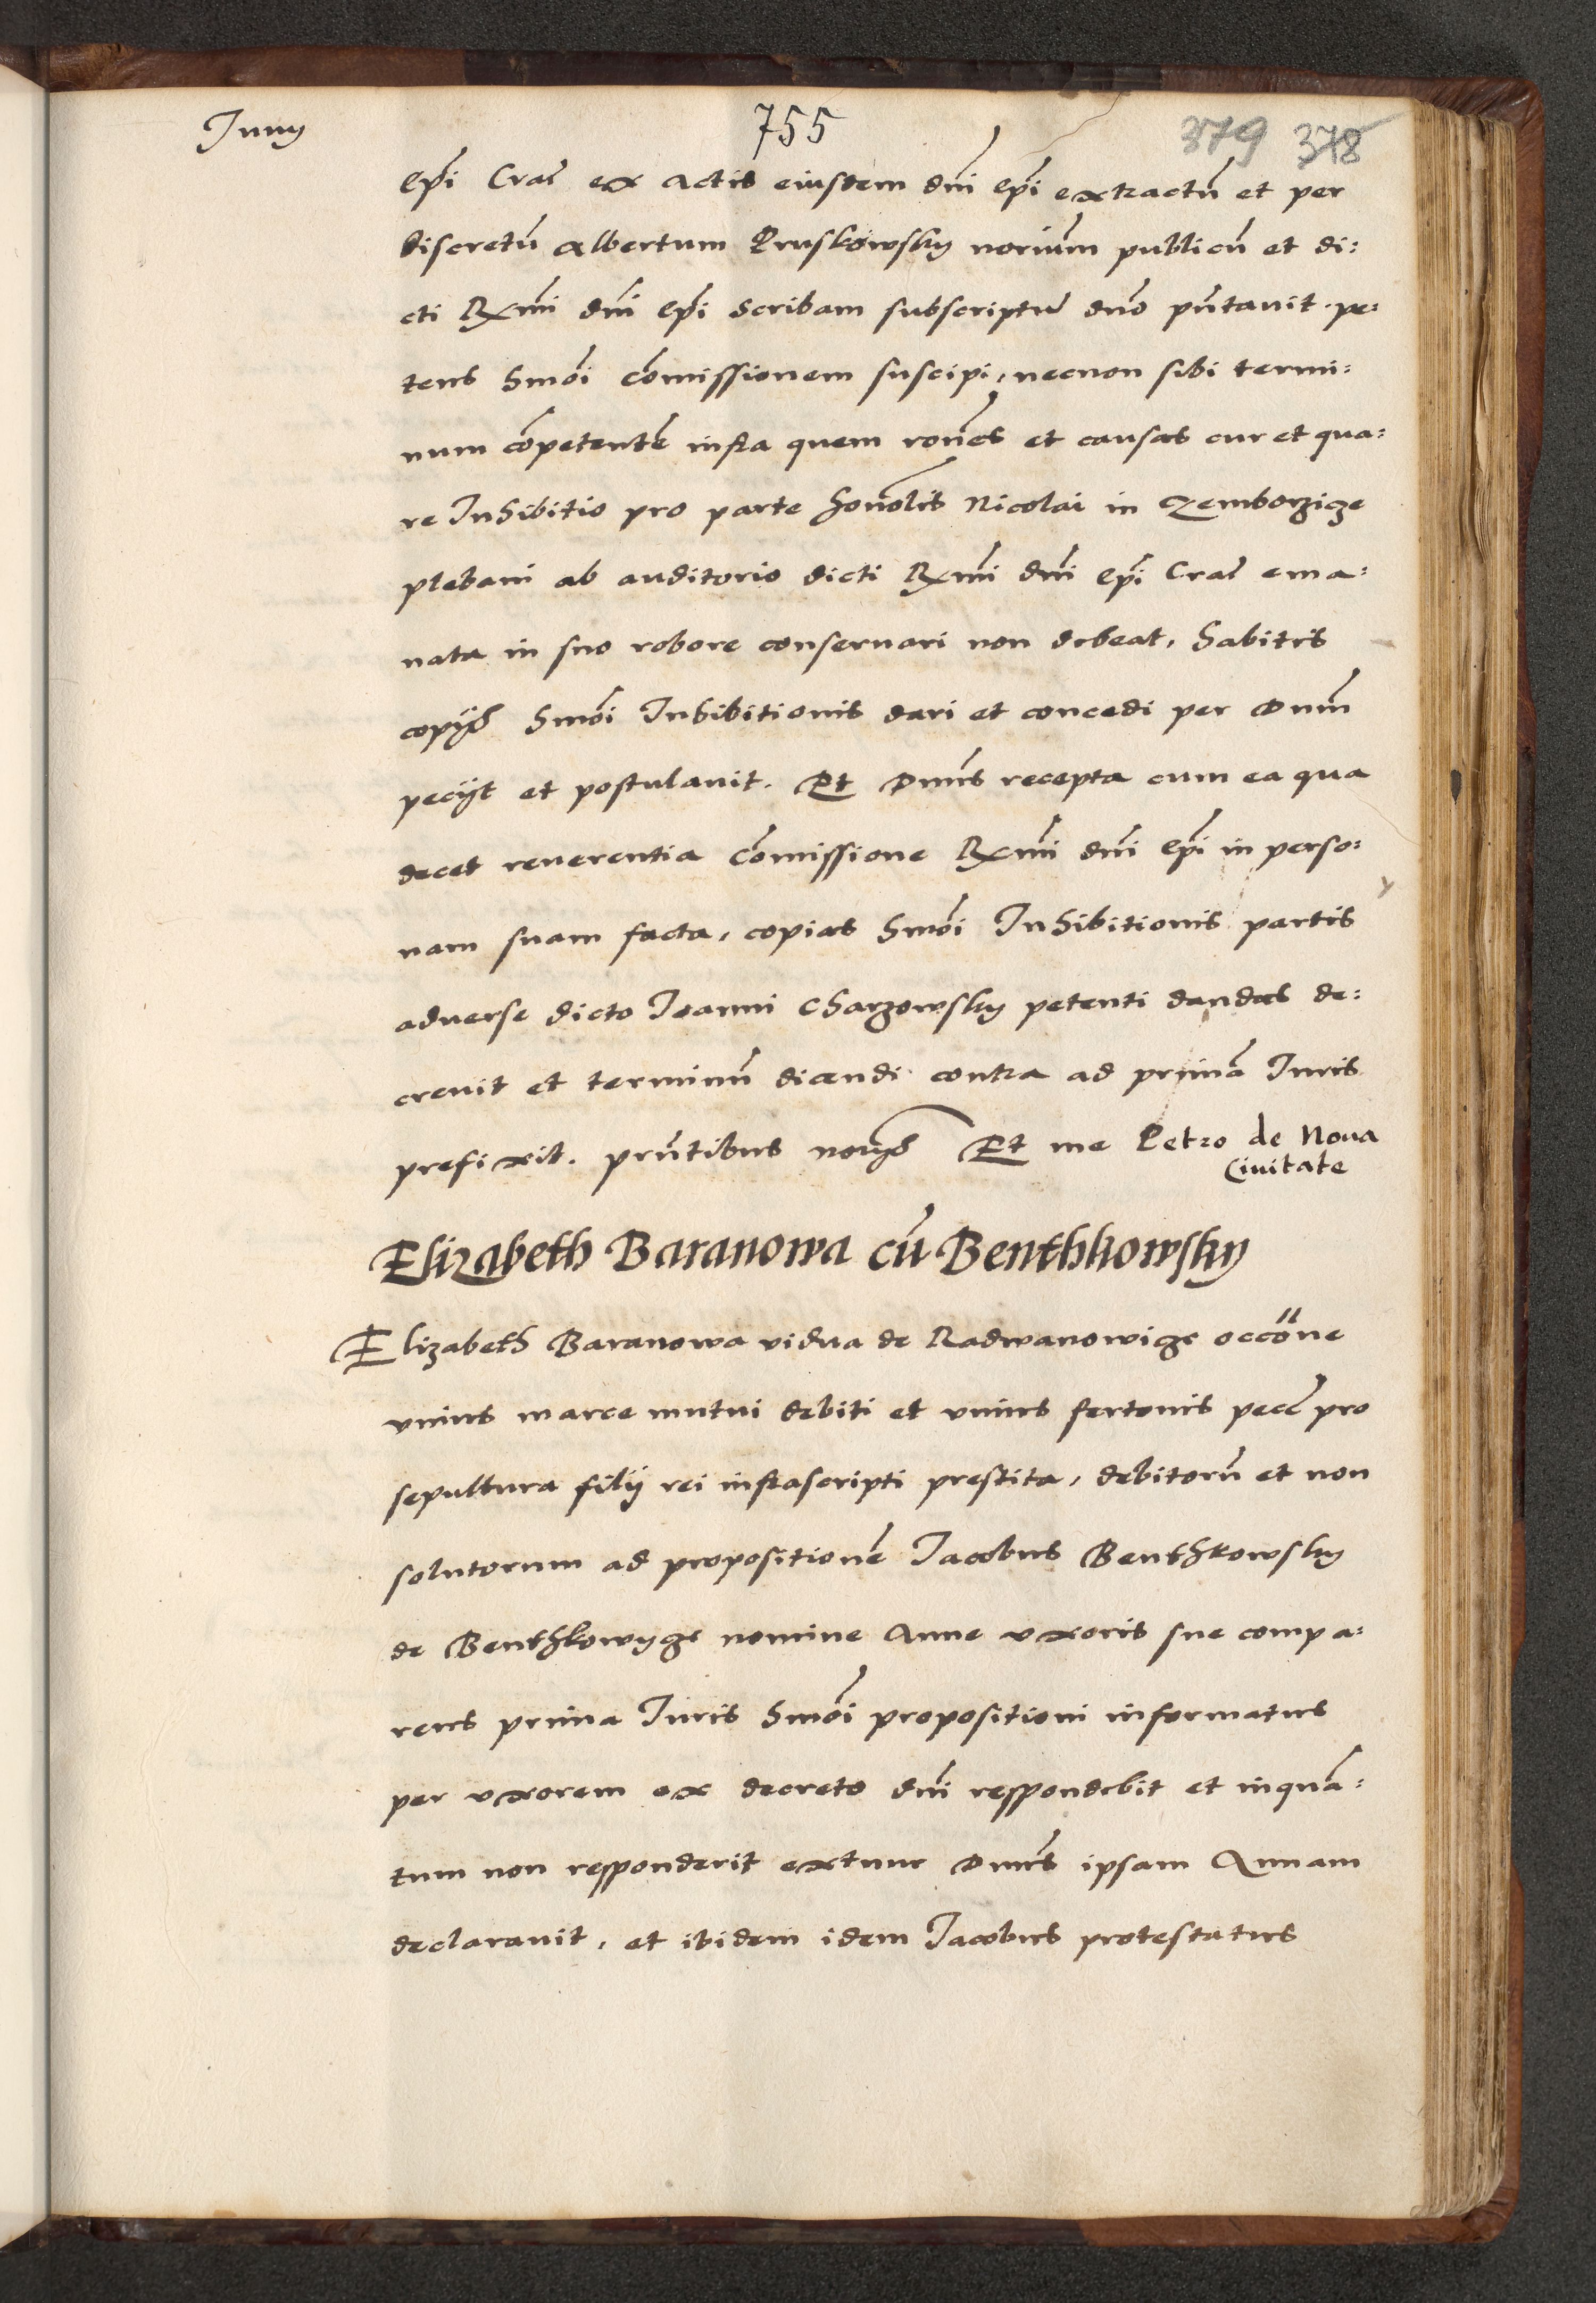 Junÿ
755
379 378
Ep̃i Crac̃ ex actis eiusdem dñi Ep̃i extractũ et per
discretũ Albertum Pruskowsky noriũm publicũ et di:
cti Rx̃mi dñi Ep̃i scribam subscriptũ dño pñtauit. pe:
tens hm̃oi Cõmissionem suscipi, necnon sibi termi:
num cõpetentẽ infra quem roñes et causas cur et qua:
re Inhibitio pro parte honõlis Nicolai in Czemborzicze
plebani ab auditorio dicti Rx̃mi dñi Ep̃i Crac̃ ema:
nata in suo robore conseruari non debeat, habitis
copijs hm̃oi Inhibitionis dari et concedi per Dñum
pecijt et postulauit. Et Dñus recepta cum ea qua
decet reuerentia Cõmissione Rx̃mi dñi Ep̃i in perso:
nam suam facta, copias hm̃oi Inhibitionis partis
aduerse dicto Joanni Charzowsky petenti dandas de:
creuit et terminũ dicendi contra ad primã Iuris
prefixit. prñtibus norijs Et me Petro de Noua
Ciuitate
Elizabeth Baranowa cũ Benthkowsky
Elizabeth Baranowa vidua de Radwanowicze occõne
vnius marce mutui debiti et vnius fertonis pecc̃ pro
sepultura filij rei infrascripti prestita, debitorũ et non
solutorum ad propositionẽ Jacobus Benthkowsky
de Benthkowycze nomine Anne vxoris sue compa:
rens prima Iuris hm̃oi propositioni informatus
per vxorem ex decreto dñi respondebit et inquã:
tum non responderit extunc Dñus ipsam Annam
declarauit, et ibidem idem Jacobus protestatus